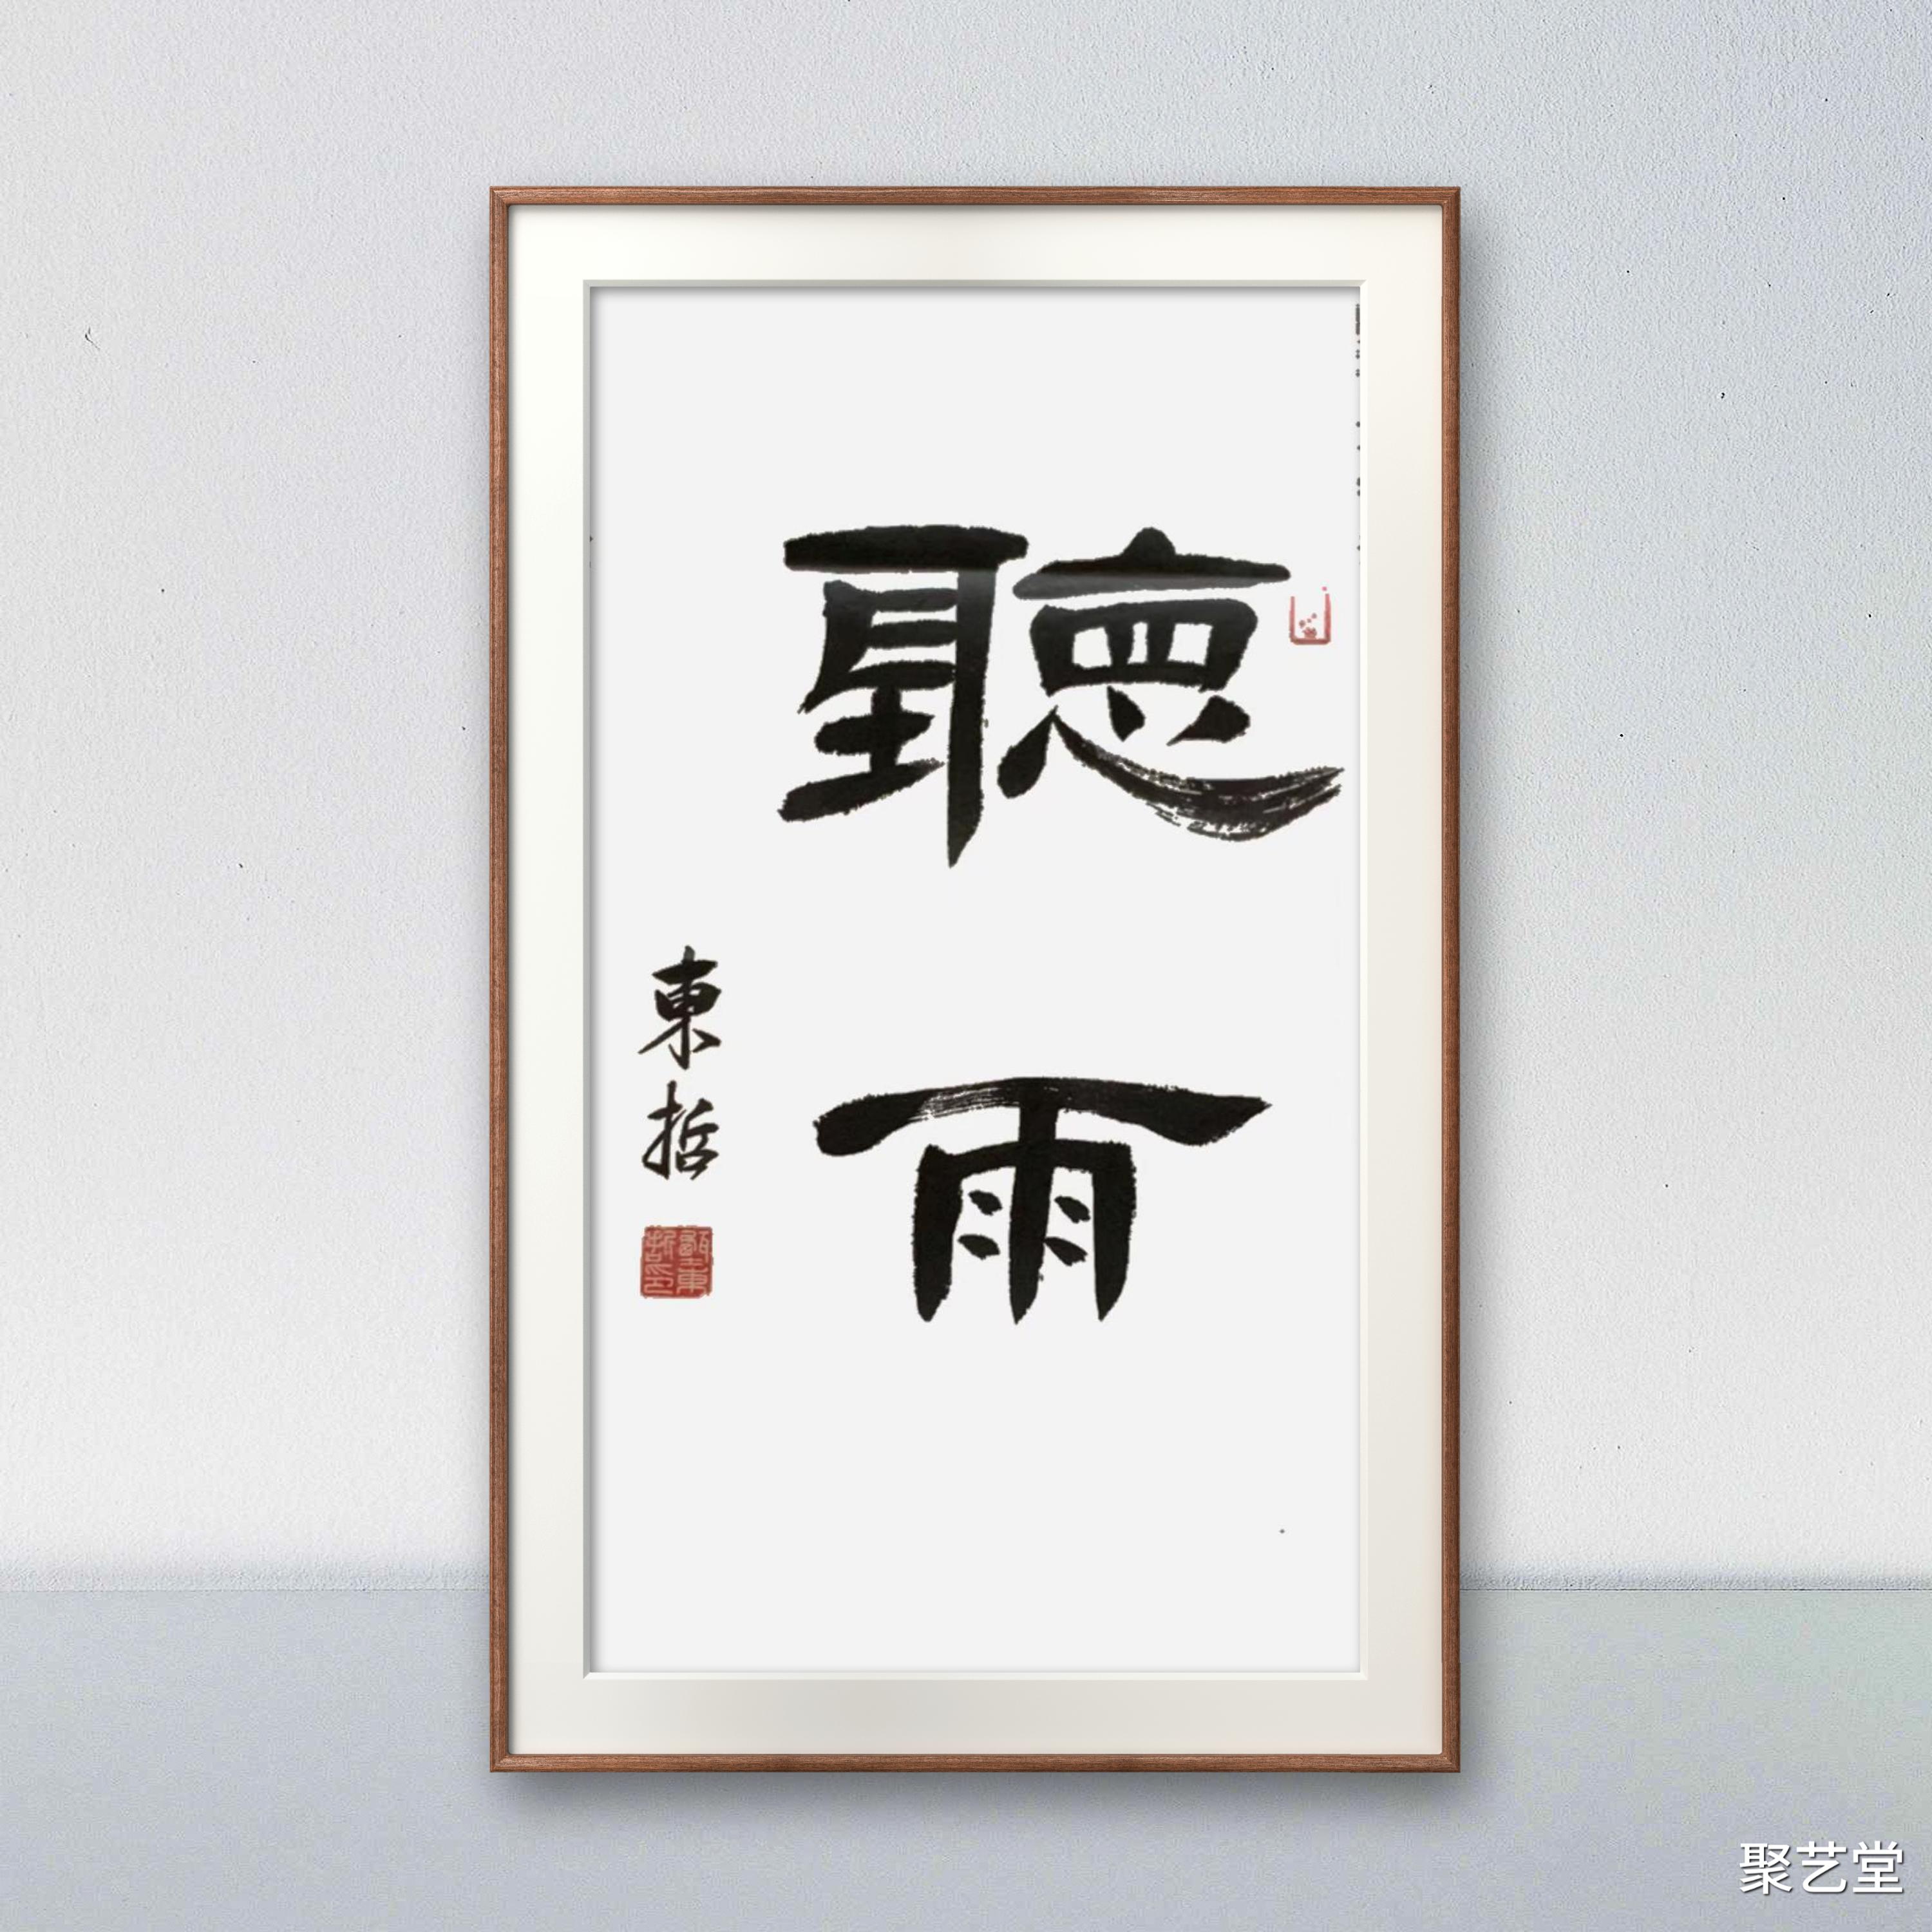 聽雨
東哲
聚艺堂